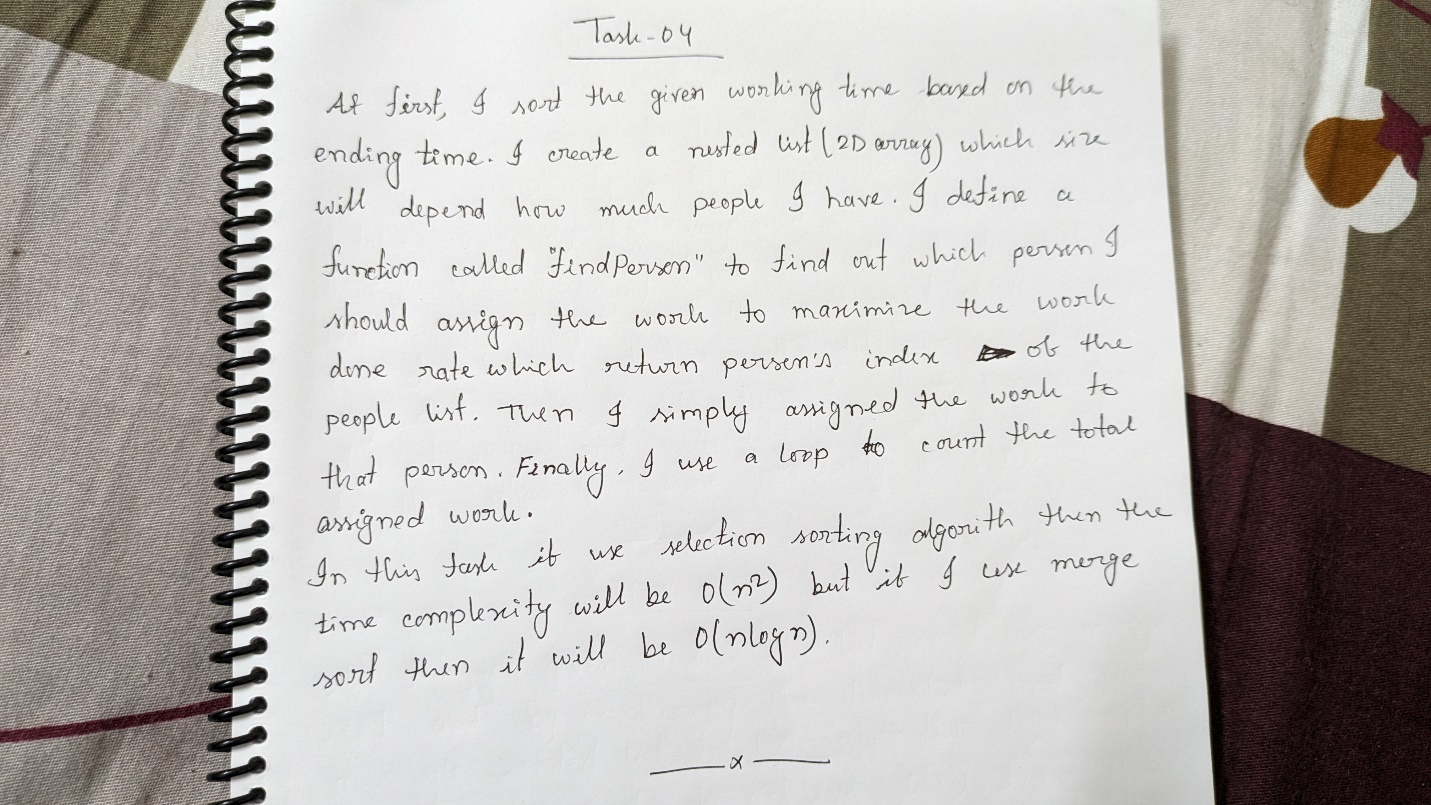 Task-04
At first, I sort the given working time based on the
ending time. I create a nested list (2D array) which size
will depend how much people I have. I define a
function called "findPerson" to find out which person I
should assign the work to maximize the work
done rate which return person's index of the
people list. Then I simply assigned the work to
that person. Finally, I use a loop to count the total
assigned work.
In this task if use selection sorting algorith then the
time complexity will be O(n²) but if I use merge
sort then it will be O(nlogn).
x